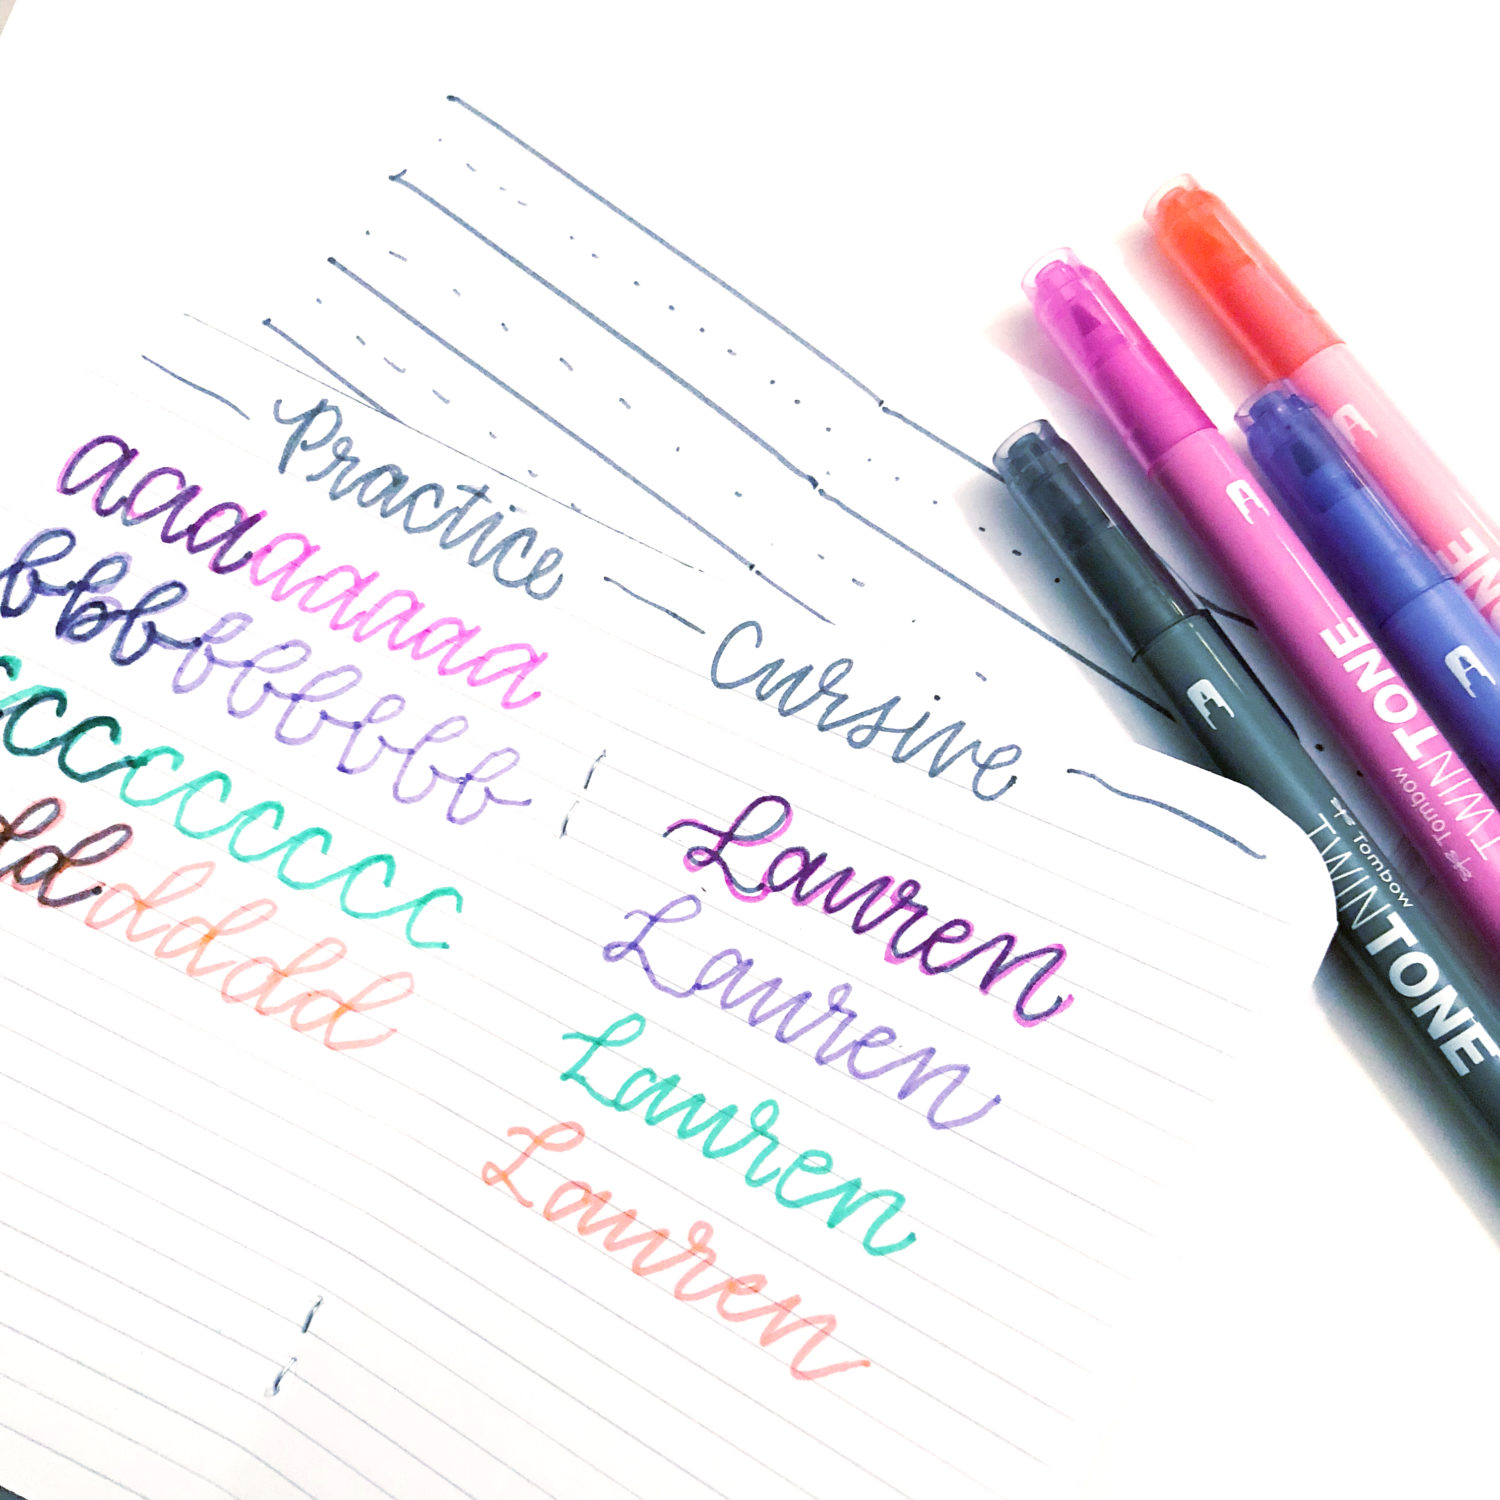 Practice
Cursive
aaaaaaaa
bbbbbbbbb
ccccccccc
dddddd
Lauren
Lauren
Lauren
Lauren
Tombow
TWINTONE
Tombow
TWINTONE